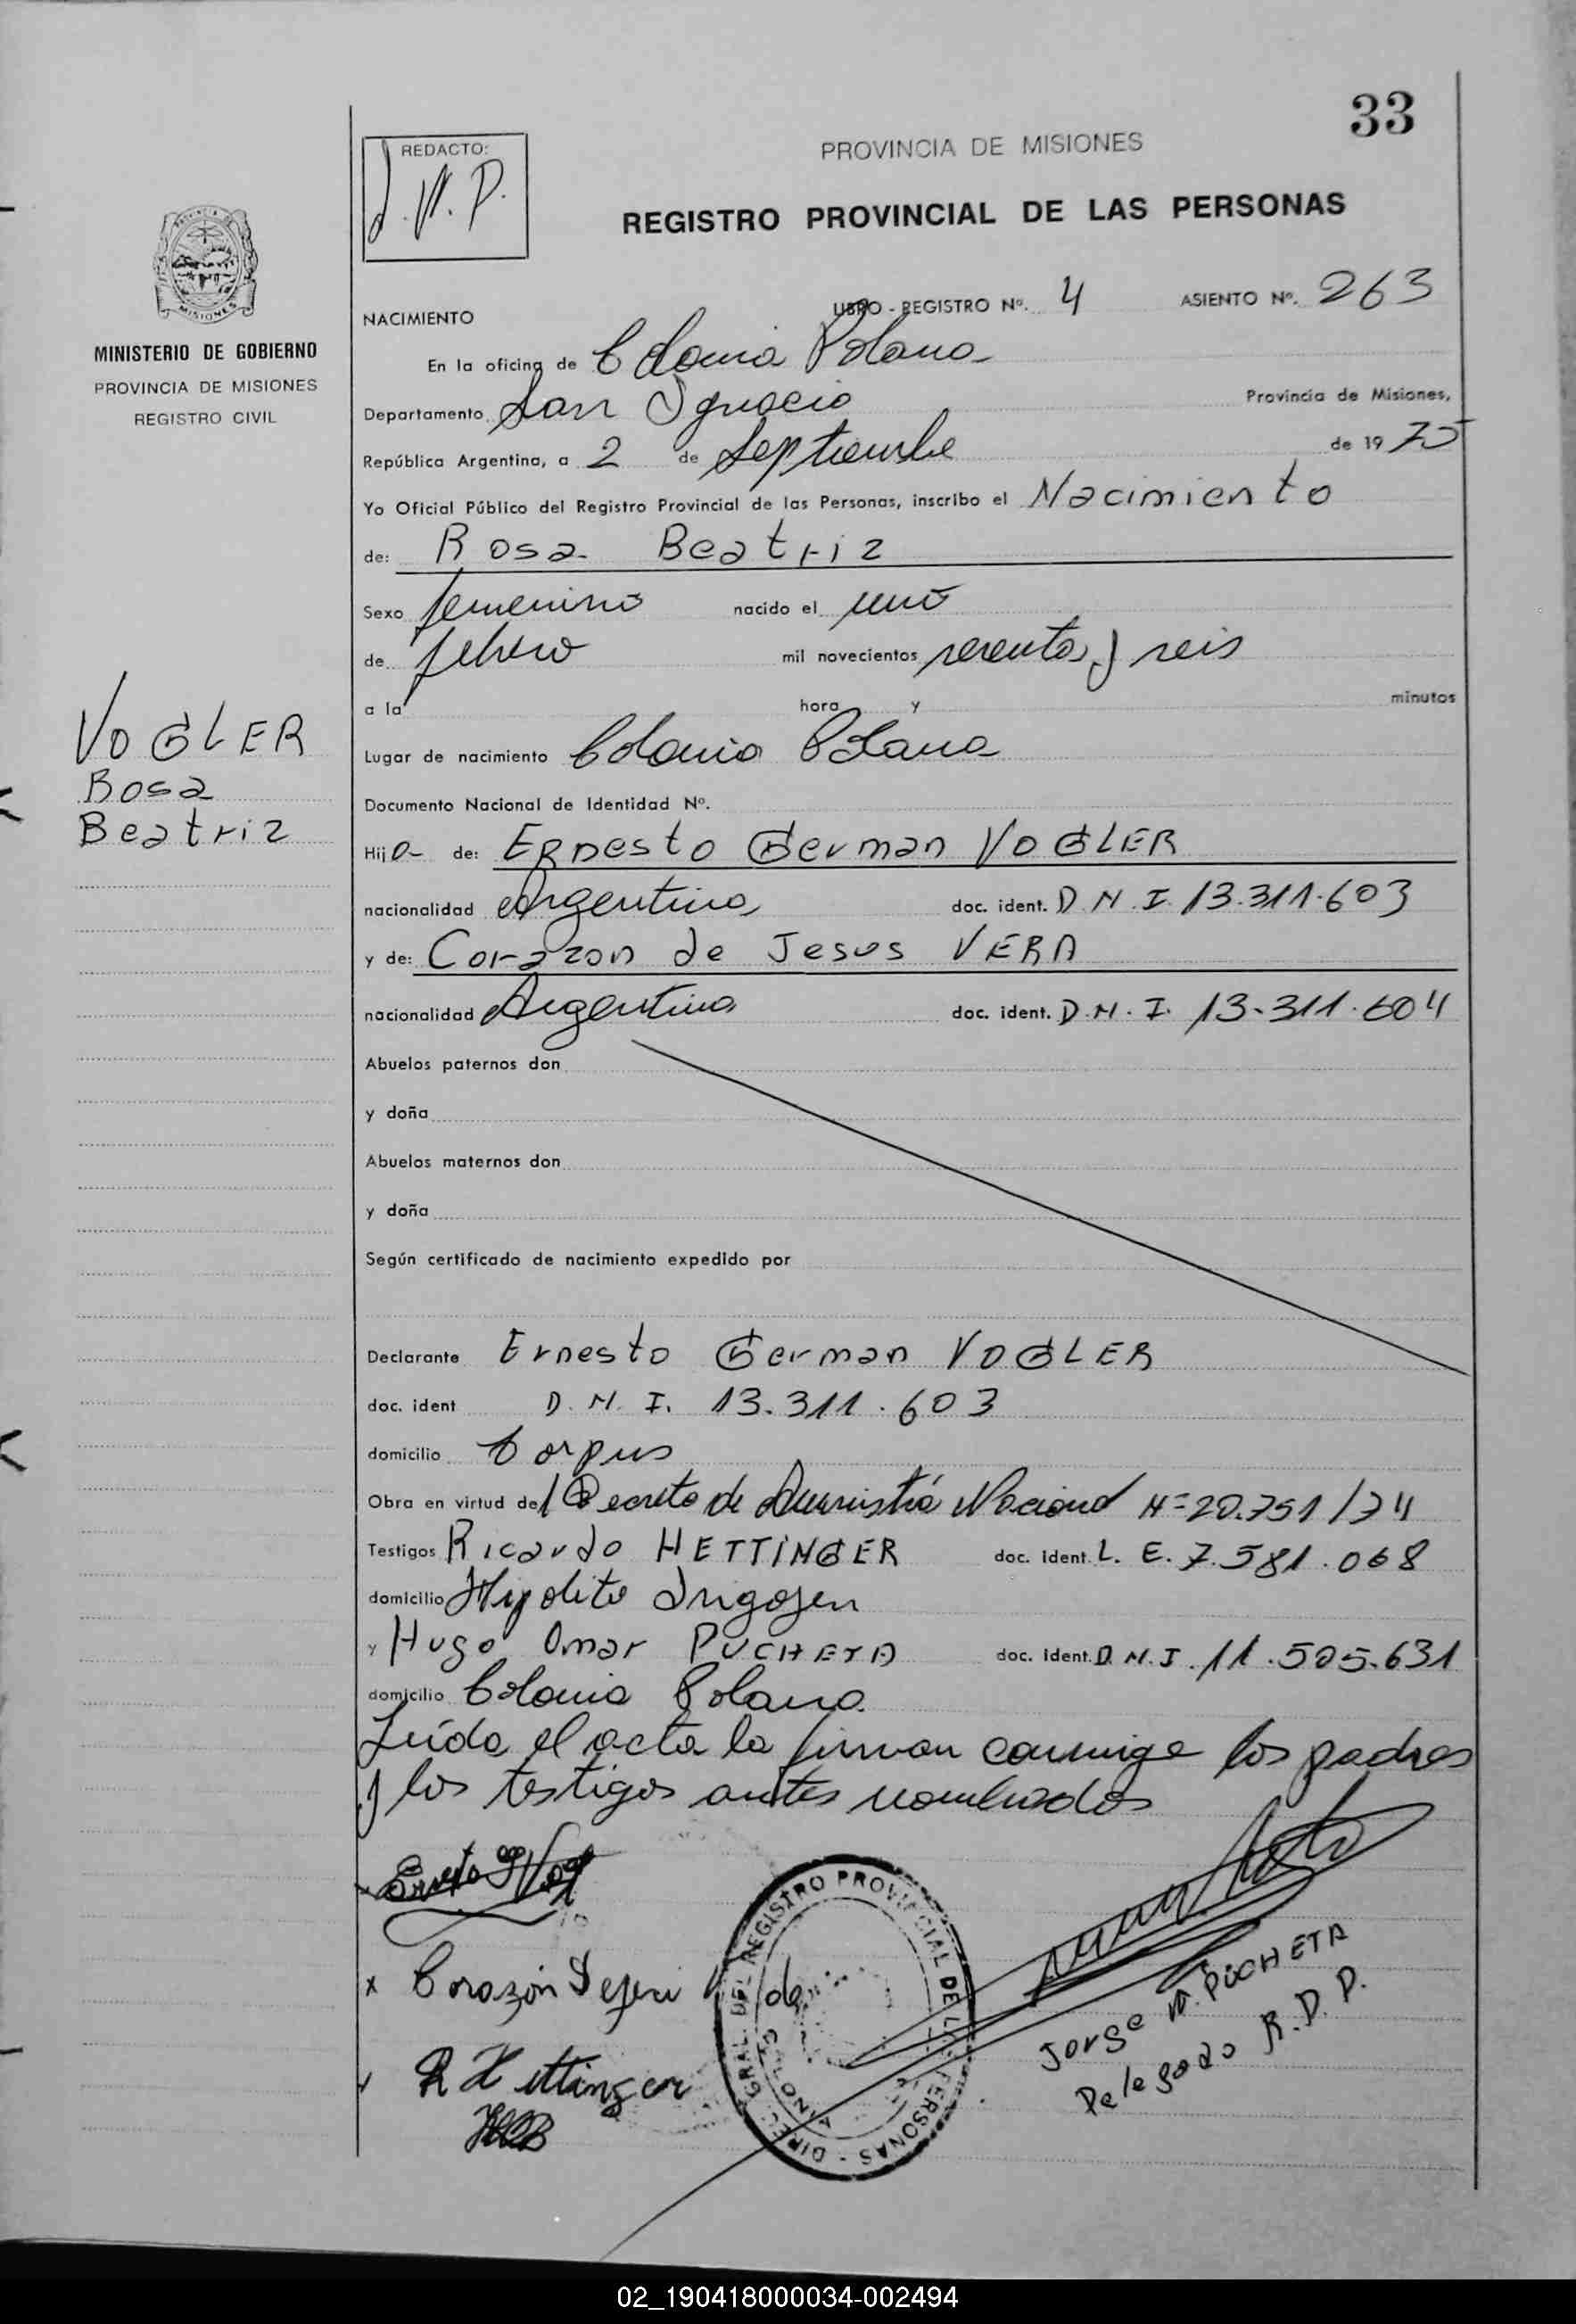 33
REDACTO:
J.M.P.
PROVINCIA DE MISIONES
REGISTRO PROVINCIAL DE LAS PERSONAS
MISIONES
MINISTERIO DE GOBIERNO
PROVINCIA DE MISIONES
REGISTRO CIVIL
NACIMIENTO LIBRO - REGISTRO Nº. 4 ASIENTO Nº. 263
En la oficina de Colonia Polana
Departamento San Ignacio Provincia de Misiones,
República Argentina, a 2 de Septiembre de 19 75
Yo Oficial Público del Registro Provincial de las Personas, inscribo el Nacimiento
de: Rosa Beatriz
Sexo femenino nacido el uno
de febrero mil novecientos sesenta y seis
a la hora y minutos
Lugar de nacimiento Colonia Polana
Documento Nacional de Identidad Nº.
VOGLER
Rosa
Beatriz
Hija de: Ernesto German VOGLER
nacionalidad Argentina doc. ident. D.N.I. 13.311.603
y de: Corazon de Jesus VERA
nacionalidad Argentina doc. ident. D.N.I. 13.311.604
Abuelos paternos don
y doña
Abuelos maternos don
y doña
Según certificado de nacimiento expedido por
Declarante Ernesto German VOGLER
doc. ident D.N.I. 13.311.603
domicilio Corpus
Obra en virtud del Decreto de Amnistía Nacional Nº 20.751/74
Testigos Ricardo HETTINGER doc. ident. L.E. 7.581.068
domicilio Hipolito Irigoyen
y Hugo Omar PUCHETA doc. ident. D.N.I. 11.505.631
domicilio Colonia Polana
Leída el acta la firman conmigo los padres
y los testigos antes nombrados
Ernesto G Vog
x Corazón de
R Hettinger
DIREC. GRAL. DEL REGISTRO PROVINCIAL DE LAS PERSONAS
Jorge M. PUCHETA
Delegado R.D.P.
02_190418000034-002494